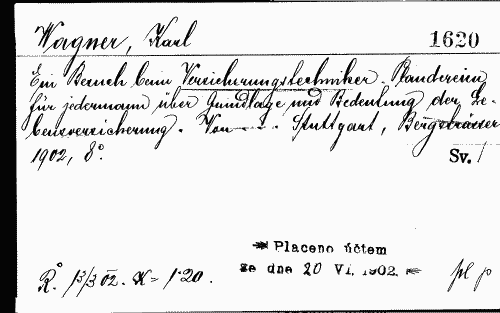 Wagner, Karl 1620
Ein Besuch beim Versicherungstechniker. Plaudereien
für jedermann über Grundlage und Bedeutung der Le-
bensversicherung. Von - " - . Stuttgart, Bergsträsser
1902, 8°. Sv. /
Placeno účtem
R. 13/3 02. K = 1·20. ze dne 20 VI. 1902.